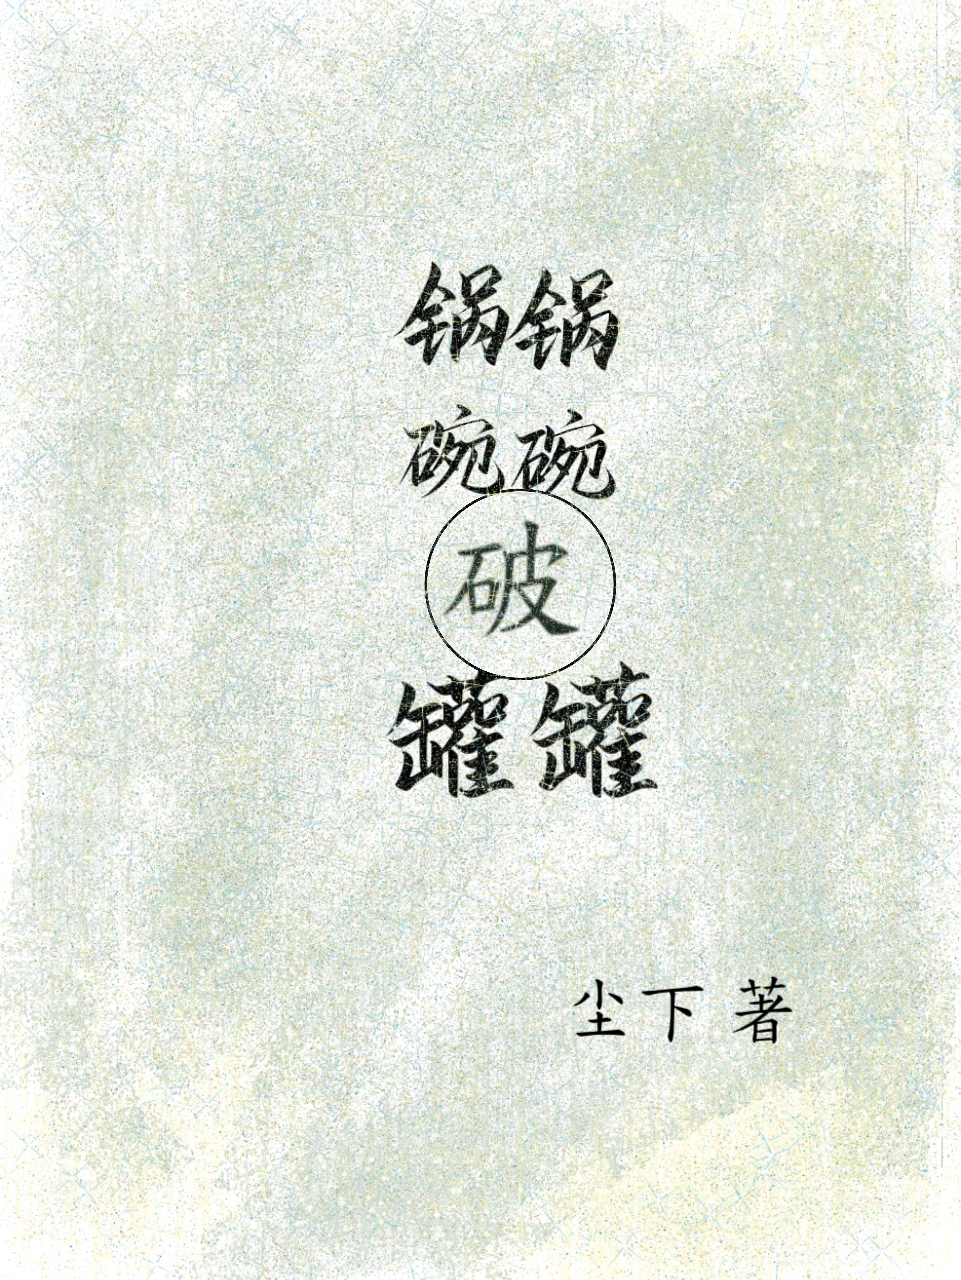 锅锅
碗碗
破
罐罐
尘下 著